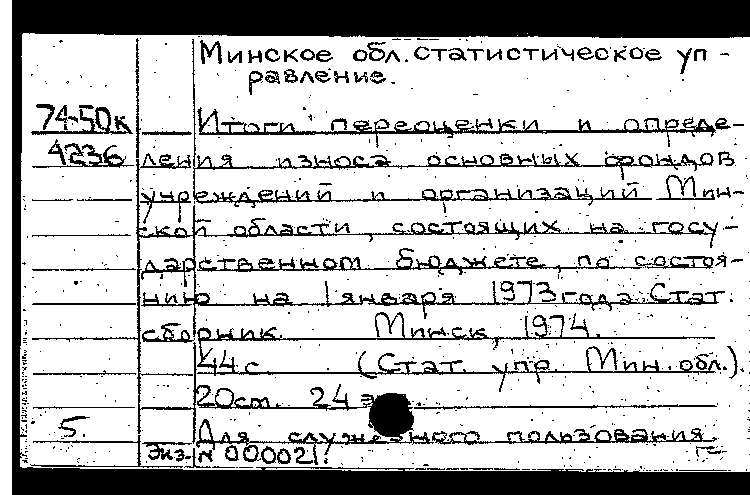 Минское обл. статистическое уп-
равление.
74-50к Итоги переоценки и опреде-
4236 ления износа основных фондов
учреждений и организаций Мин-
ской области, состоящих на госу-
дарственном бюджете, по состоя-
нию на 1 января 1973 года. Стат.
сборник. Минск, 1974.
44 с. (Стат. упр. Мин. обл.).
20 см. 24 э
5. Для служебного пользования.
Экз. N 000021!